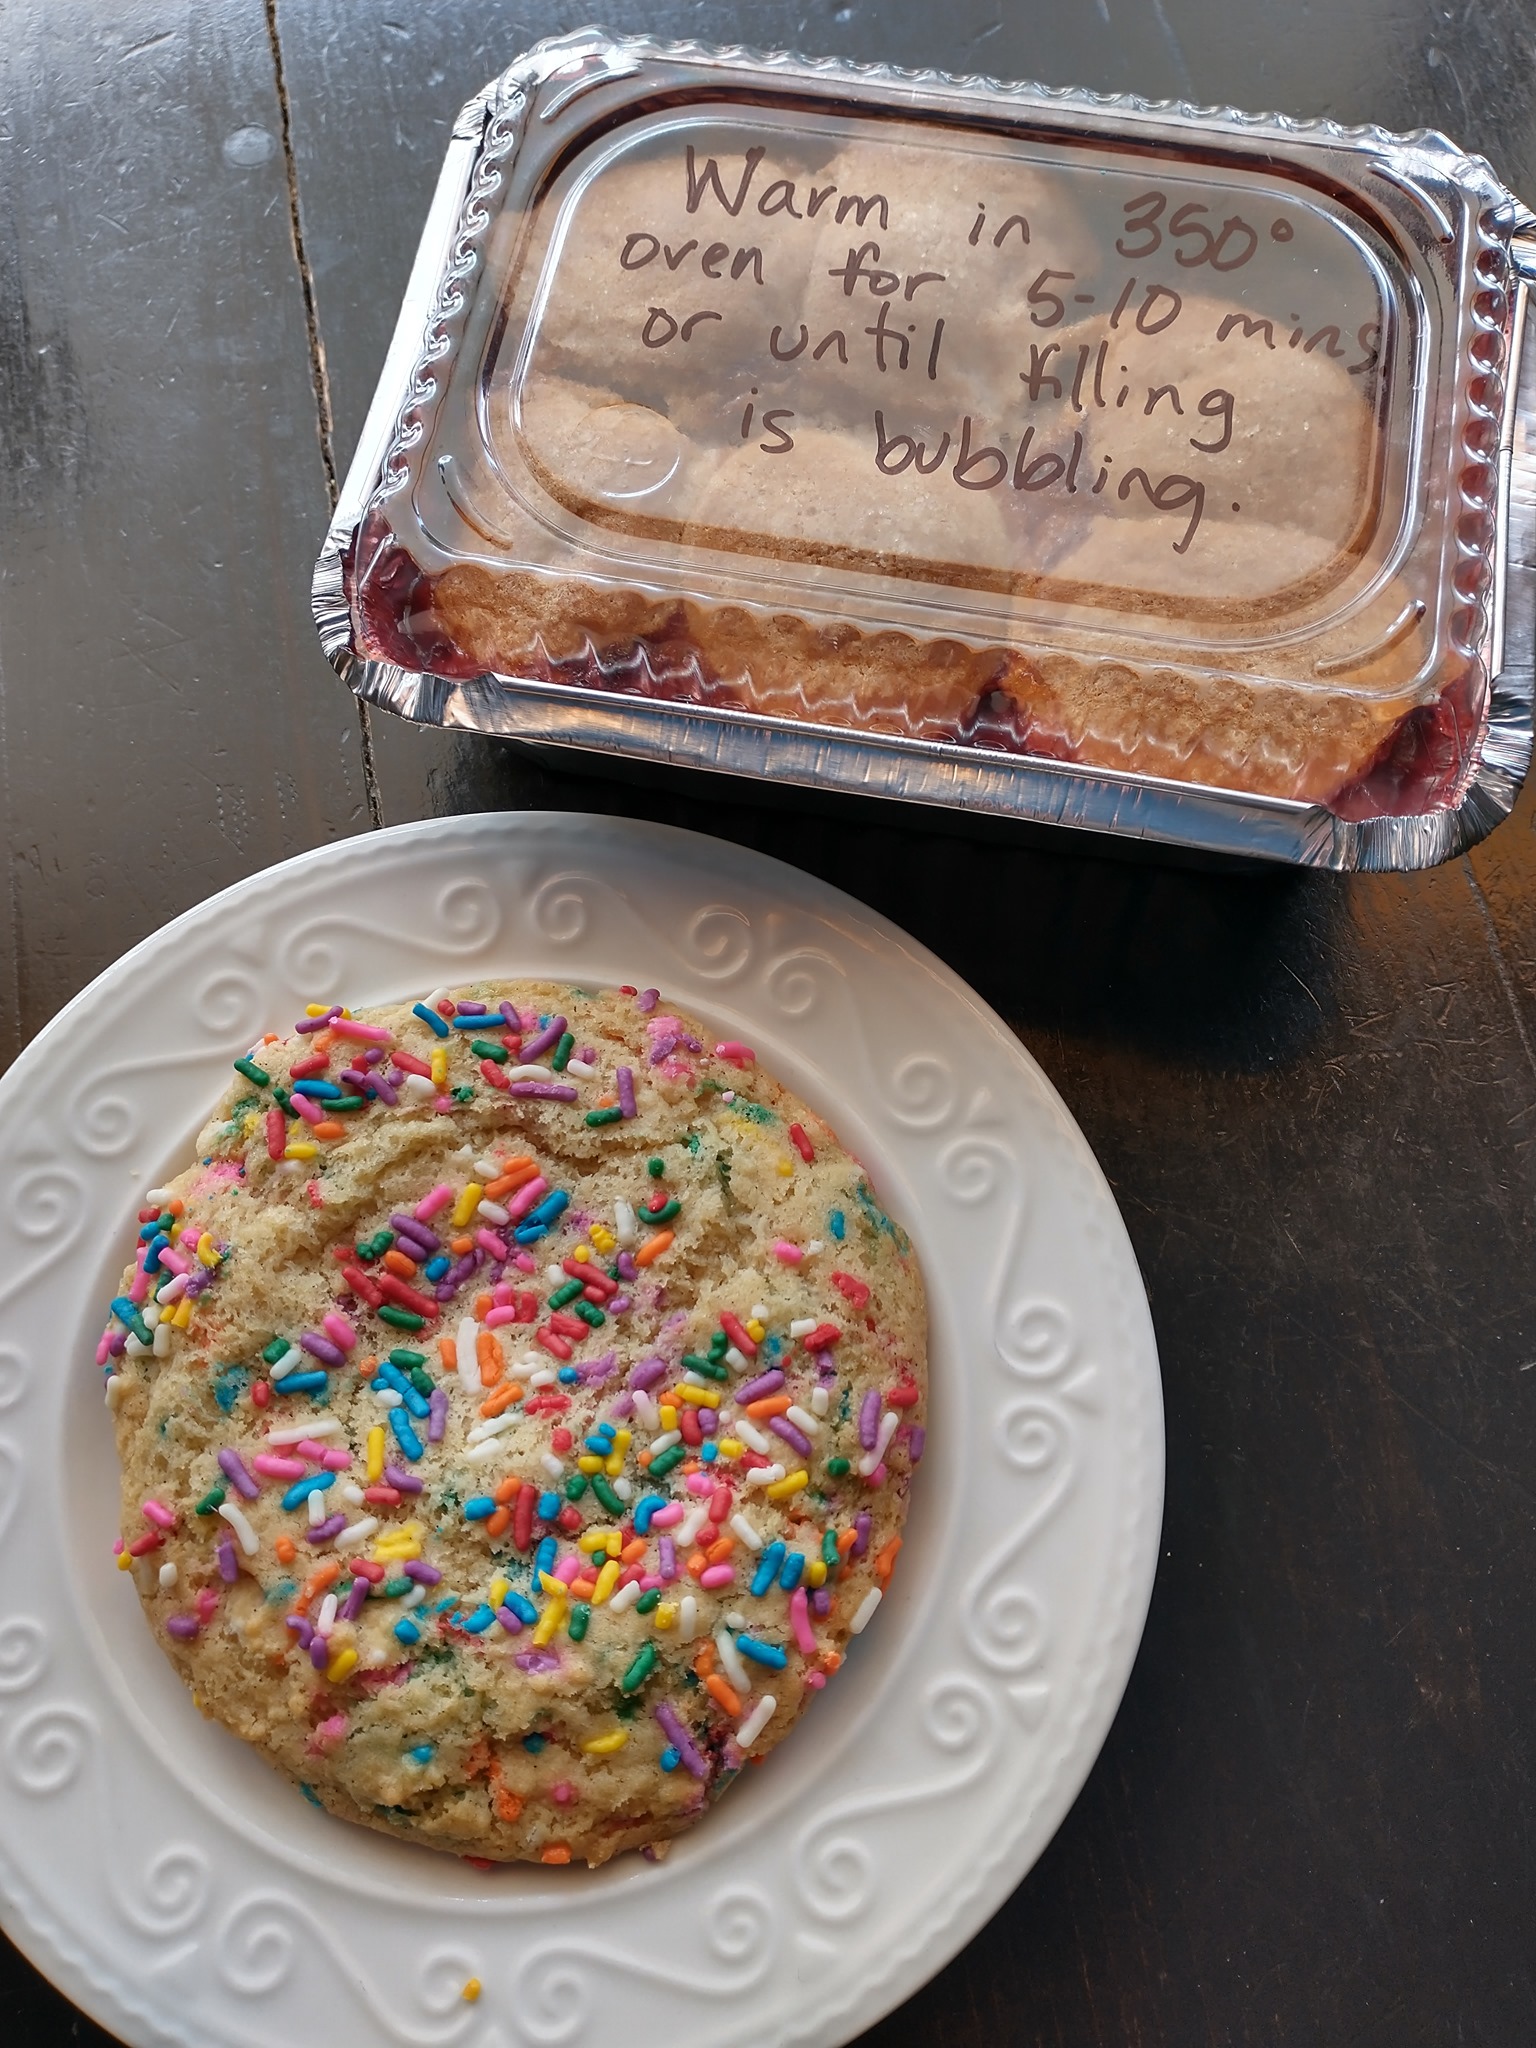 Warm in 350°
oven for 5-10 mins.
or until filling
is bubbling.